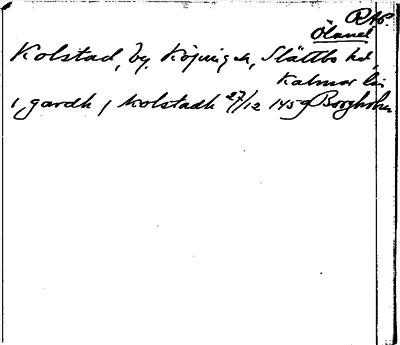 RAp.
Öland
Kolstad, by, Köpings sn, Slättbo hd,
Kalmar län
i gardh j Kolstadh 27/12 1459 Borgholm